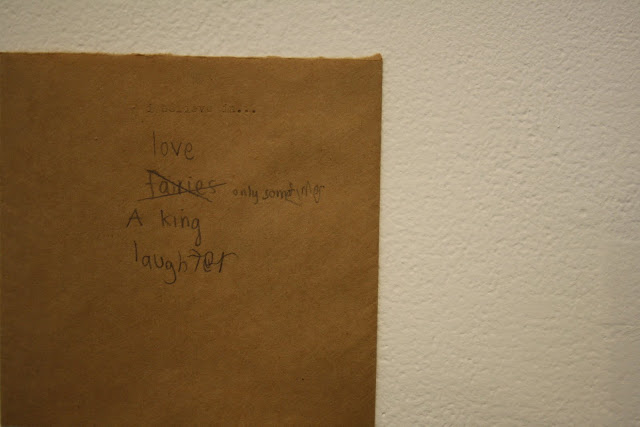 I believe in...
love
fairies only sometimes
A king
laughter